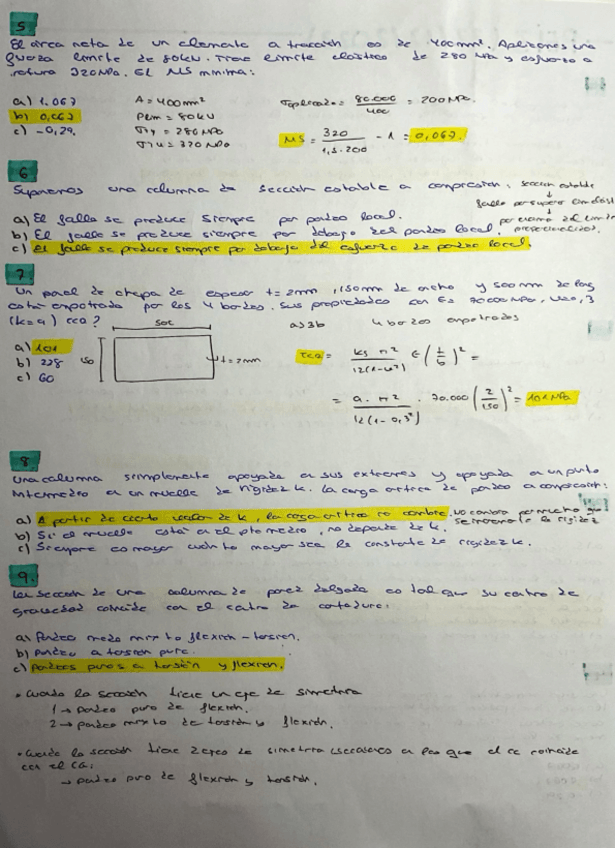 5
El area neta de un elemento a tracción es de 400mm². Aplicamos una
fuerza limite de 80kN. Tiene limite elastico de 280 MPa y esfuerzo a
rotura 320MPa. El MS minimo:
a) 1.067 A = 400mm² σaplicado = 80.000 / 400 = 200MPa.
b) 0,067 Plim = 80kN
c) -0,29. σy = 280MPa MS = 320 / 1,5·200 - 1 = 0,067.
σu = 320MPa
6
Suponemos una columna de sección estable a compresión: sección estable
↓
falla por superar
a) El fallo se produce siempre por pandeo local. por encima del limite
b) El fallo se produce siempre por debajo del pandeo local. proporcionalidad.
c) el fallo se produce siempre por debajo del esfuerzo de pandeo local.
7
Un panel de chapa de espesor t=2mm, 150mm de ancho y 500mm de largo
está empotrada por los 4 bordes. Sus propiedades son E= 70000MPa, ν=0,3
(k=9) τcq?
500 a>3b 4 bordes empotrados
a) 101
b) 228 150 t=2mm
c) 60 τcq = ks π² / 12(1-ν²) E (t/b)² =
= 9·π² / 12(1-0,3²) · 70.000 (2/150)² = 101MPa
8
Una columna simplemente apoyada en sus extremos y apoyada en un punto
intermedio en un muelle de rigidez k. La carga critica de pandeo a compresión:
a) A partir de cierto valor de k, la carga critica no cambia. No cambia por mucho que
se incremente la rigidez
b) Si el muelle está en el pto medio, no depende de k.
c) Siempre es mayor cuanto mayor sea la constante de rigidez k.
9.
La sección de una columna de pared delgada es tal que su centro de
gravedad coincide con el centro de cortadura:
a) Pandeo modo mixto flexión-torsión.
b) pandeo a torsión pura.
c) pandeos puros a torsión y flexión.
• Cuando la sección tiene un eje de simetria
1 → pandeo puro de flexión.
2 → pandeo mixto de torsión y flexión.
• Cuando la sección tiene 2 ejes de simetria (secciones en las que el cc coincide
con el CG:
→ pandeo puro de flexión y torsión.